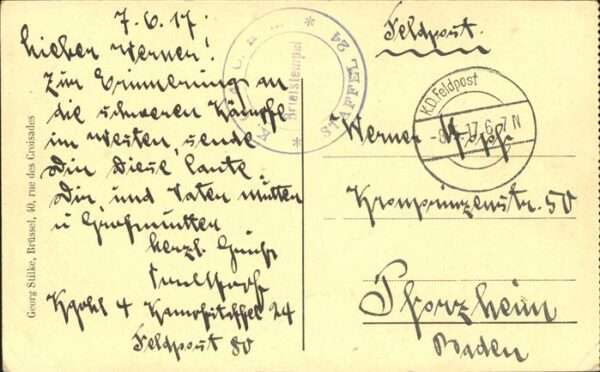 7.6.17.
Lieber Werner!
Zur Erinnerung an
die schweren Kämpfe
im Westen, sende
Dir diese Karte.
Dir, und Vater Mutter
u Großmutter
herzl. Grüße
Kgohl 4 Kampfstaffel 24
Feldpost 80
Georg Stilke, Brüssel, 40, rue des Croisades
Briefstempel
STAFFEL 24
Feldpost.
K.D.Feldpost
17.6. 7 N
Werner
Kronprinzenstr. 50
Pforzheim
Baden